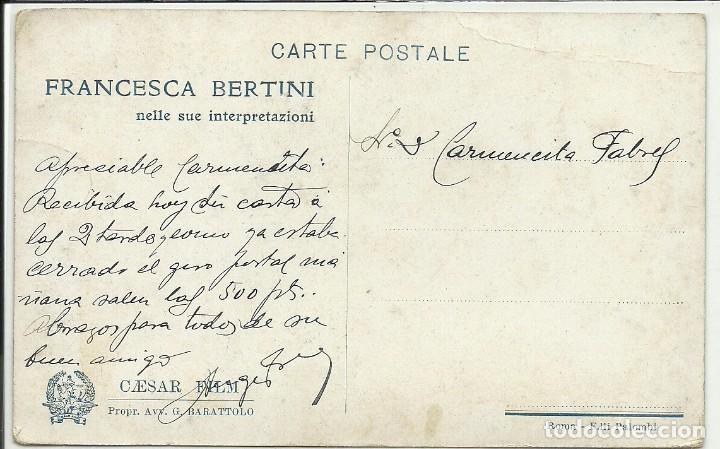 CARTE POSTALE
FRANCESCA BERTINI
nelle sue interpretazioni
Apresiable Carmencita:
Recibida hoy su carta á
las 2 tarde y como ya estaba
cerrado el giro postal ma
ñana salen las 500 pts..
Abrazos para todos de su
buen amigo
CÆSAR FILM
Propr. Avv. G. BARATTOLO
Carmencita Fabreg
Roma - F.lli Palombi
todocoleccion.net